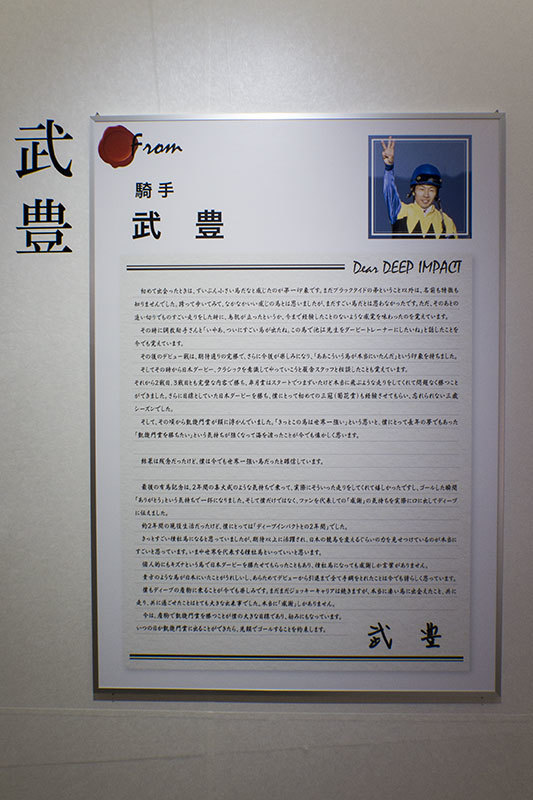 武豊
From
騎手
武 豊
Dear DEEP IMPACT
初めて出会ったときは、ずいぶん小さい馬だなと感じたのが第一印象です。まだブラックタイドの弟ということ以外は、名前も特徴も
知りませんでした。跨って歩いてみて、なかなかいい感じの馬とは思いましたが、まだすごい馬だとは思わなかったです。ただ、そのあとの
追い切りでものすごい走りをした時に、鳥肌が立ったというか、今まで経験したことのないような感覚を味わったのを覚えています。
その時に調教助手さんと「いやあ、ついにすごい馬が出たね。この馬で池江先生をダービートレーナーにしたいね」と話したことを
今でも覚えています。
その後のデビュー戦は、期待通りの完勝で、さらに今後が楽しみになり、「ああこういう馬が本当にいたんだ」という印象を持ちました。
そしてその時から日本ダービー、クラシックを意識してやっていこうと厩舎スタッフと相談したことも覚えています。
それから2戦目、3戦目とも完璧な内容で勝ち、皐月賞はスタートでつまずいたけど本当に飛ぶような走りをしてくれて問題なく勝つこと
ができました。さらに目標としていた日本ダービーを勝ち、僕にとって初めての三冠(菊花賞)も経験させてもらい、忘れられない三歳
シーズンでした。
そして、その頃から凱旋門賞が頭に浮かんでいました。「きっとこの馬は世界一強い」という思いと、僕にとって長年の夢でもあった
「凱旋門賞を勝ちたい」という気持ちが強くなって海を渡ったことが今でも懐かしく思います。
結果は残念だったけど、僕は今でも世界一強い馬だったと確信しています。
最後の有馬記念は、2年間の集大成のような気持ちで乗って、実際にそういった走りをしてくれて嬉しかったですし、ゴールした瞬間
「ありがとう」という気持ちで一杯になりました。そして僕だけではなく、ファンを代表しての「感謝」の気持ちを実際に口に出してディープ
に伝えました。
約2年間の現役生活だったけど、僕にとっては「ディープインパクトとの2年間」でした。
きっとすごい種牡馬になると思っていましたが、期待以上に活躍され、日本の競馬を変えるぐらいの力を見せつけているのが本当に
すごいと思っています。いまや世界を代表する種牡馬といっていいと思います。
個人的にもキズナという馬で日本ダービーを勝たせてもらったこともあり、種牡馬になっても感謝しか言葉がありません。
貴方のような馬が日本にいたことがうれしいし、あらためてデビューから引退まで全て手綱をとれたことは今でも誇らしく思っています。
僕もディープの産駒に乗ることが今でも楽しみです。まだまだジョッキーキャリアは続きますが、本当に凄い馬に出会えたこと、共に
走り、共に過ごせたことはとても大きな出来事でした。本当に「感謝」しかありません。
今は、産駒で凱旋門賞を勝つことが僕の大きな目標であり、励みにもなっています。
いつの日か凱旋門賞に出ることができたら、先頭でゴールすることを約束します。
武 豊